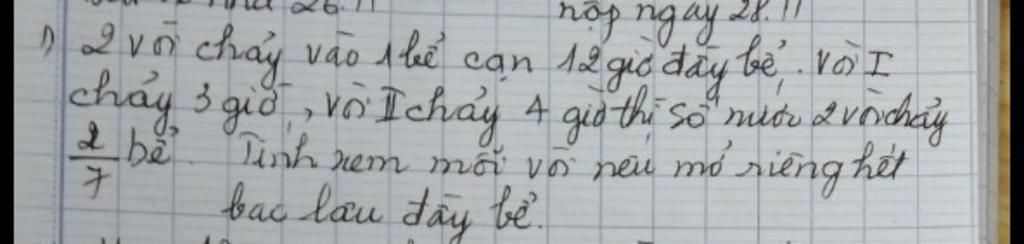 26.11
nộp ngày 28.11
1) 2 vòi chảy vào 1 bể cạn 12 giờ đầy bể. Vòi I
chảy 3 giờ, vòi II chảy 4 giờ thì số nước 2 vòi chảy
2/7 bể. Tính xem mỗi vòi nếu mở riêng hết
bao lâu đầy bể.